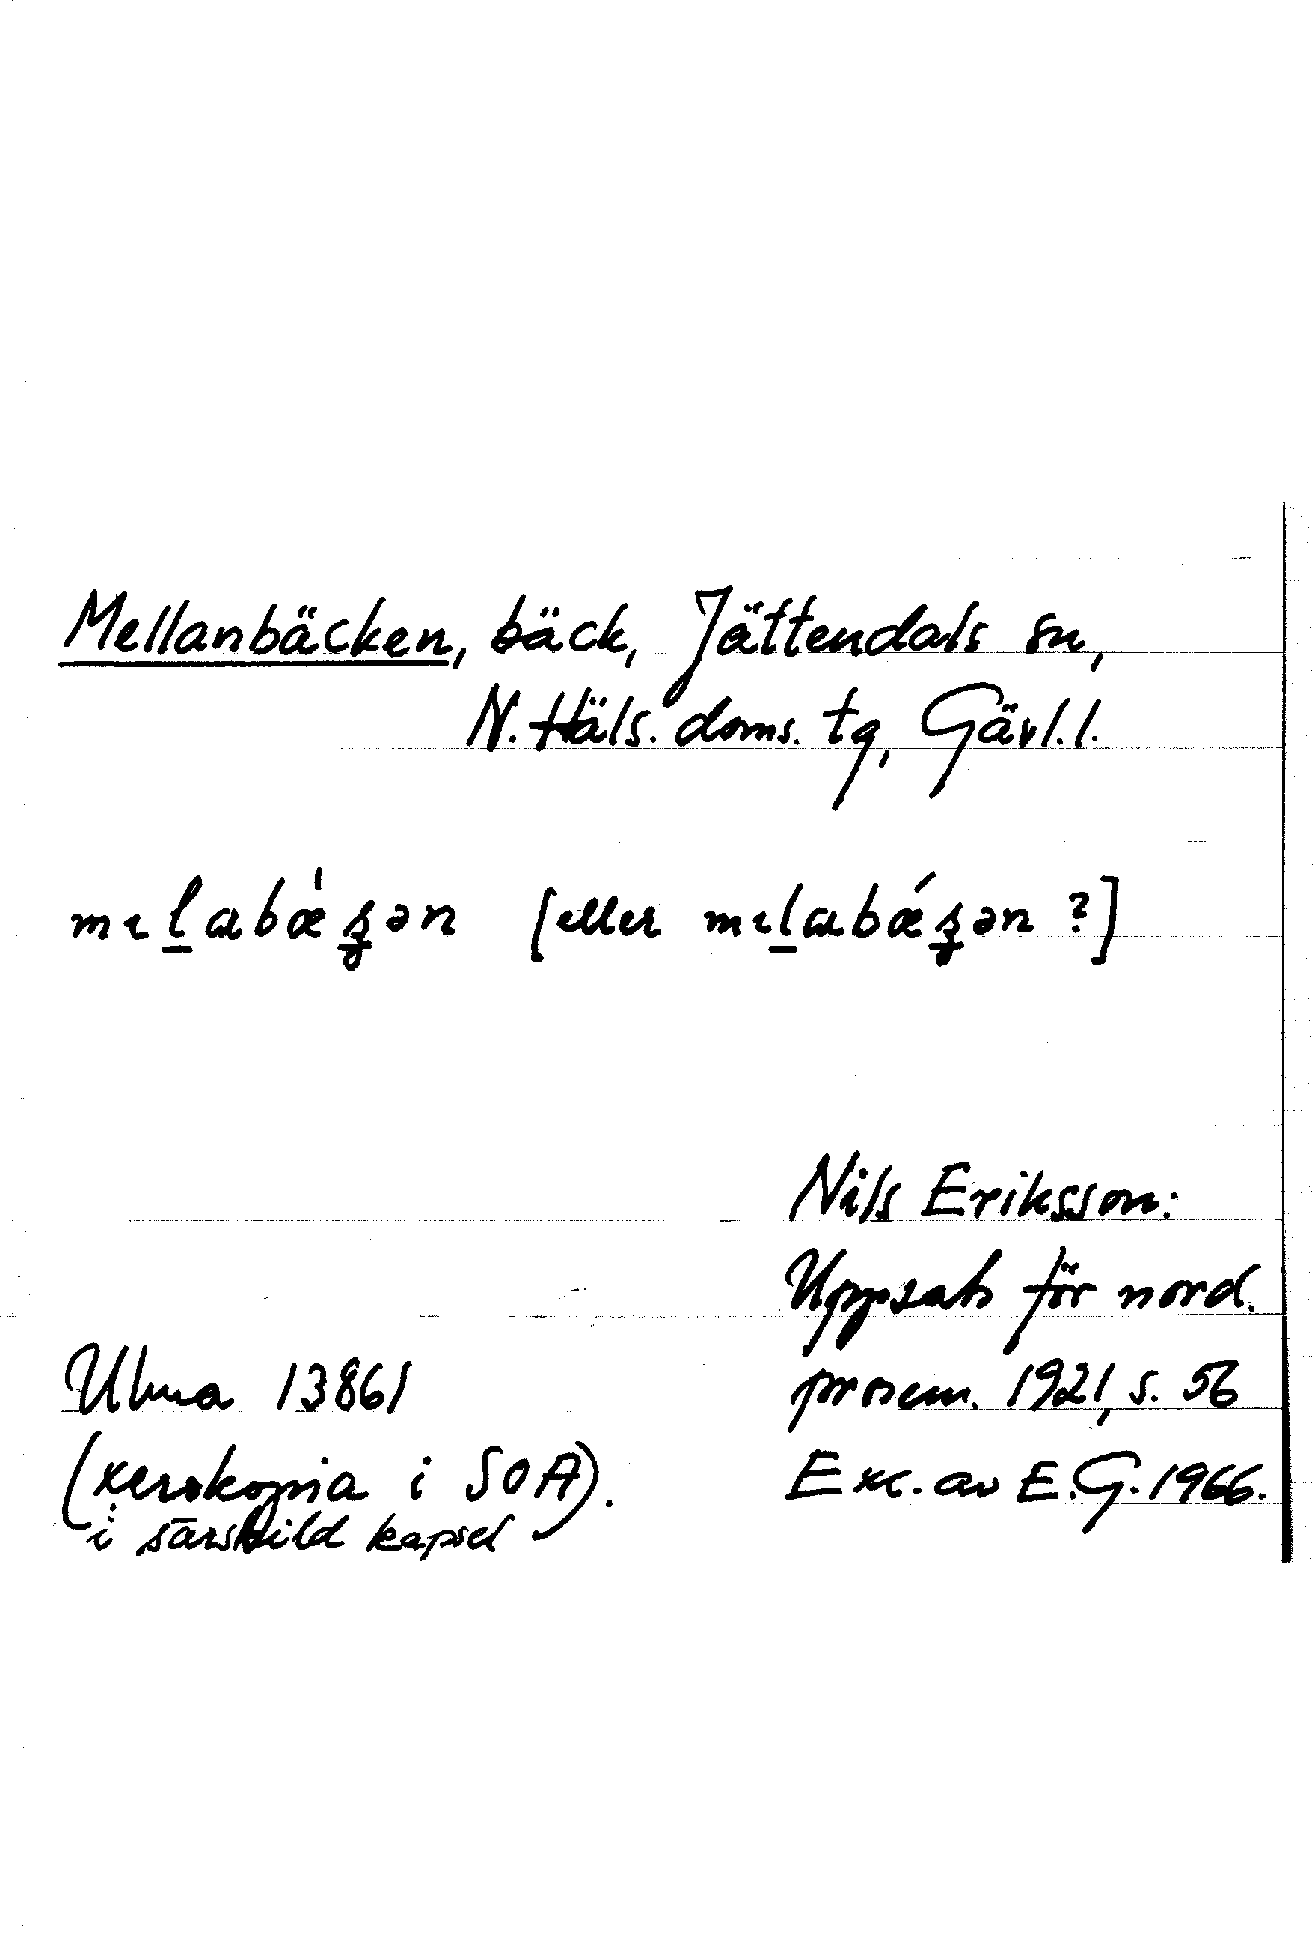 Mellanbäcken, bäck, Jättendals sn,
N. Häls. doms. tg, Gävl. l.
mɛlabæ̀ʓən [eller mɛlabǽʓən ?]
Nils Eriksson:
Uppsats för nord.
prosem. 1921, s. 56
Exc. av E.G. 1966.
Ulma 13861
(xerokopia i SOA).
i särskild kapsel